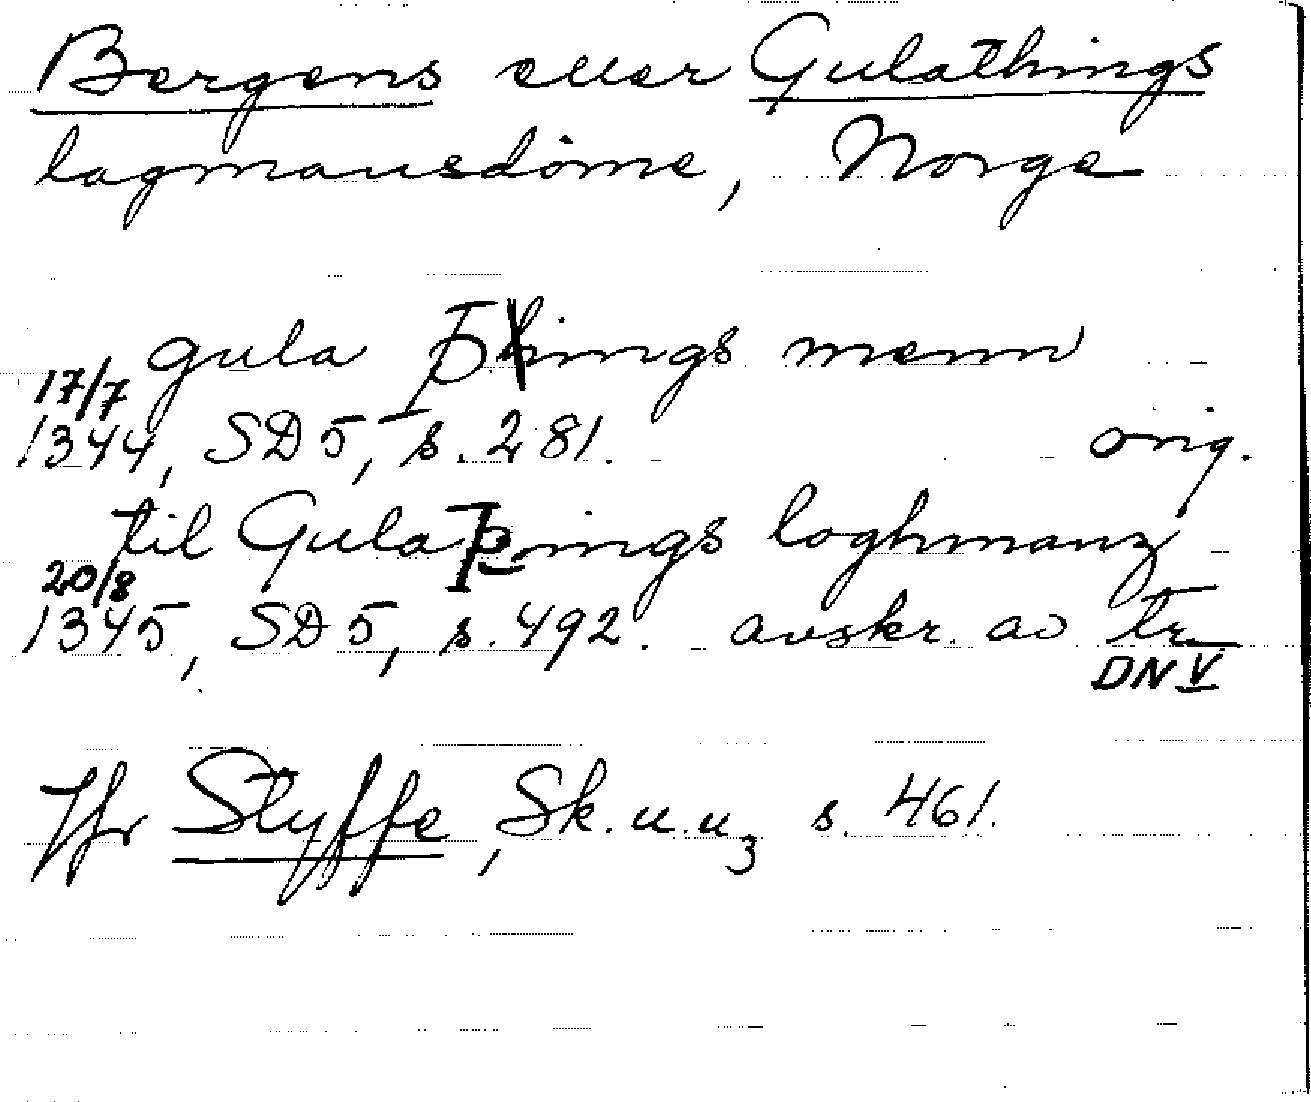 Bergens eller Gulathings
lagmansdöme, Norge
gula Þings menn
17/7
1344, SD 5, s. 281. orig.
til GulaÞings loghmanz
20/8
1345, SD 5, s. 492. avskr. av tr.
DN V
Jfr Styffe, Sk. u. u3 s. 461.